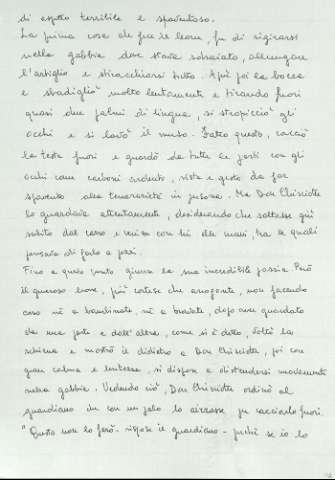 di aspetto terribile e spaventoso.
La prima cosa che fece il leone, fu di rigirarsi
nella gabbia dove stava sdraiato, allungare
l'artiglio e stiracchiarsi tutto. Aprì poi la bocca
e sbadigliò molto lentamente e tirando fuori
quasi due palmi di lingua, si stropicciò gli
occhi e si lavò il muso. Fatto questo, cacciò
la testa fuori e guardò da tutte le parti con gli
occhi come carboni ardenti, vista e gesto da far
spavento alla temerarietà in persona. Ma Don Chisciotte
lo guardava attentamente, desiderando che saltasse giù
subito dal carro e venisse con lui alle mani, tra le quali
pensava di farlo a pezzi.
Fino a questo punto giunse la sua incredibile pazzia. Però
il generoso leone, più cortese che arrogante, non facendo
caso né a bambinate, né a bravate, dopo aver guardato
da una parte e dall'altra, come si è detto, voltò la
schiena e mostrò il didietro a Don Chisciotte, poi con
gran calma e lentezza, si dispose a distendersi nuovamente
nella gabbia. Vedendo ciò, Don Chisciotte ordinò al
guardiano che con un palo lo aizzasse, per cacciarlo fuori.
"Questo non lo farò - rispose il guardiano - perché se io lo